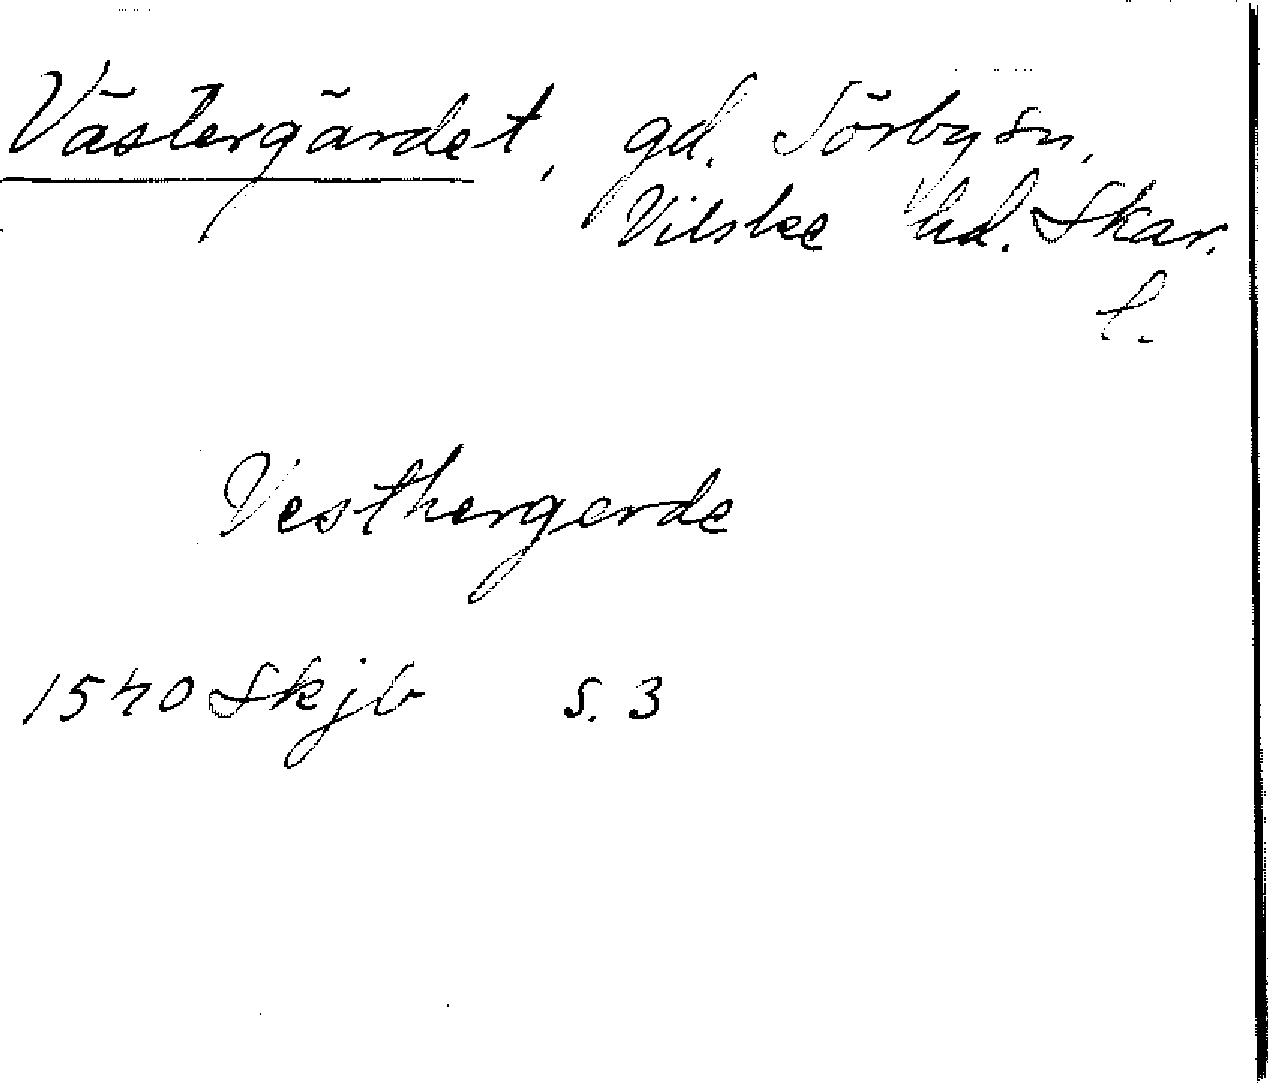 Västergärdet, gd. Sörby sn,
Vilske hd. Skar.
l.
Vesthergerde
1540 Skjb s. 3